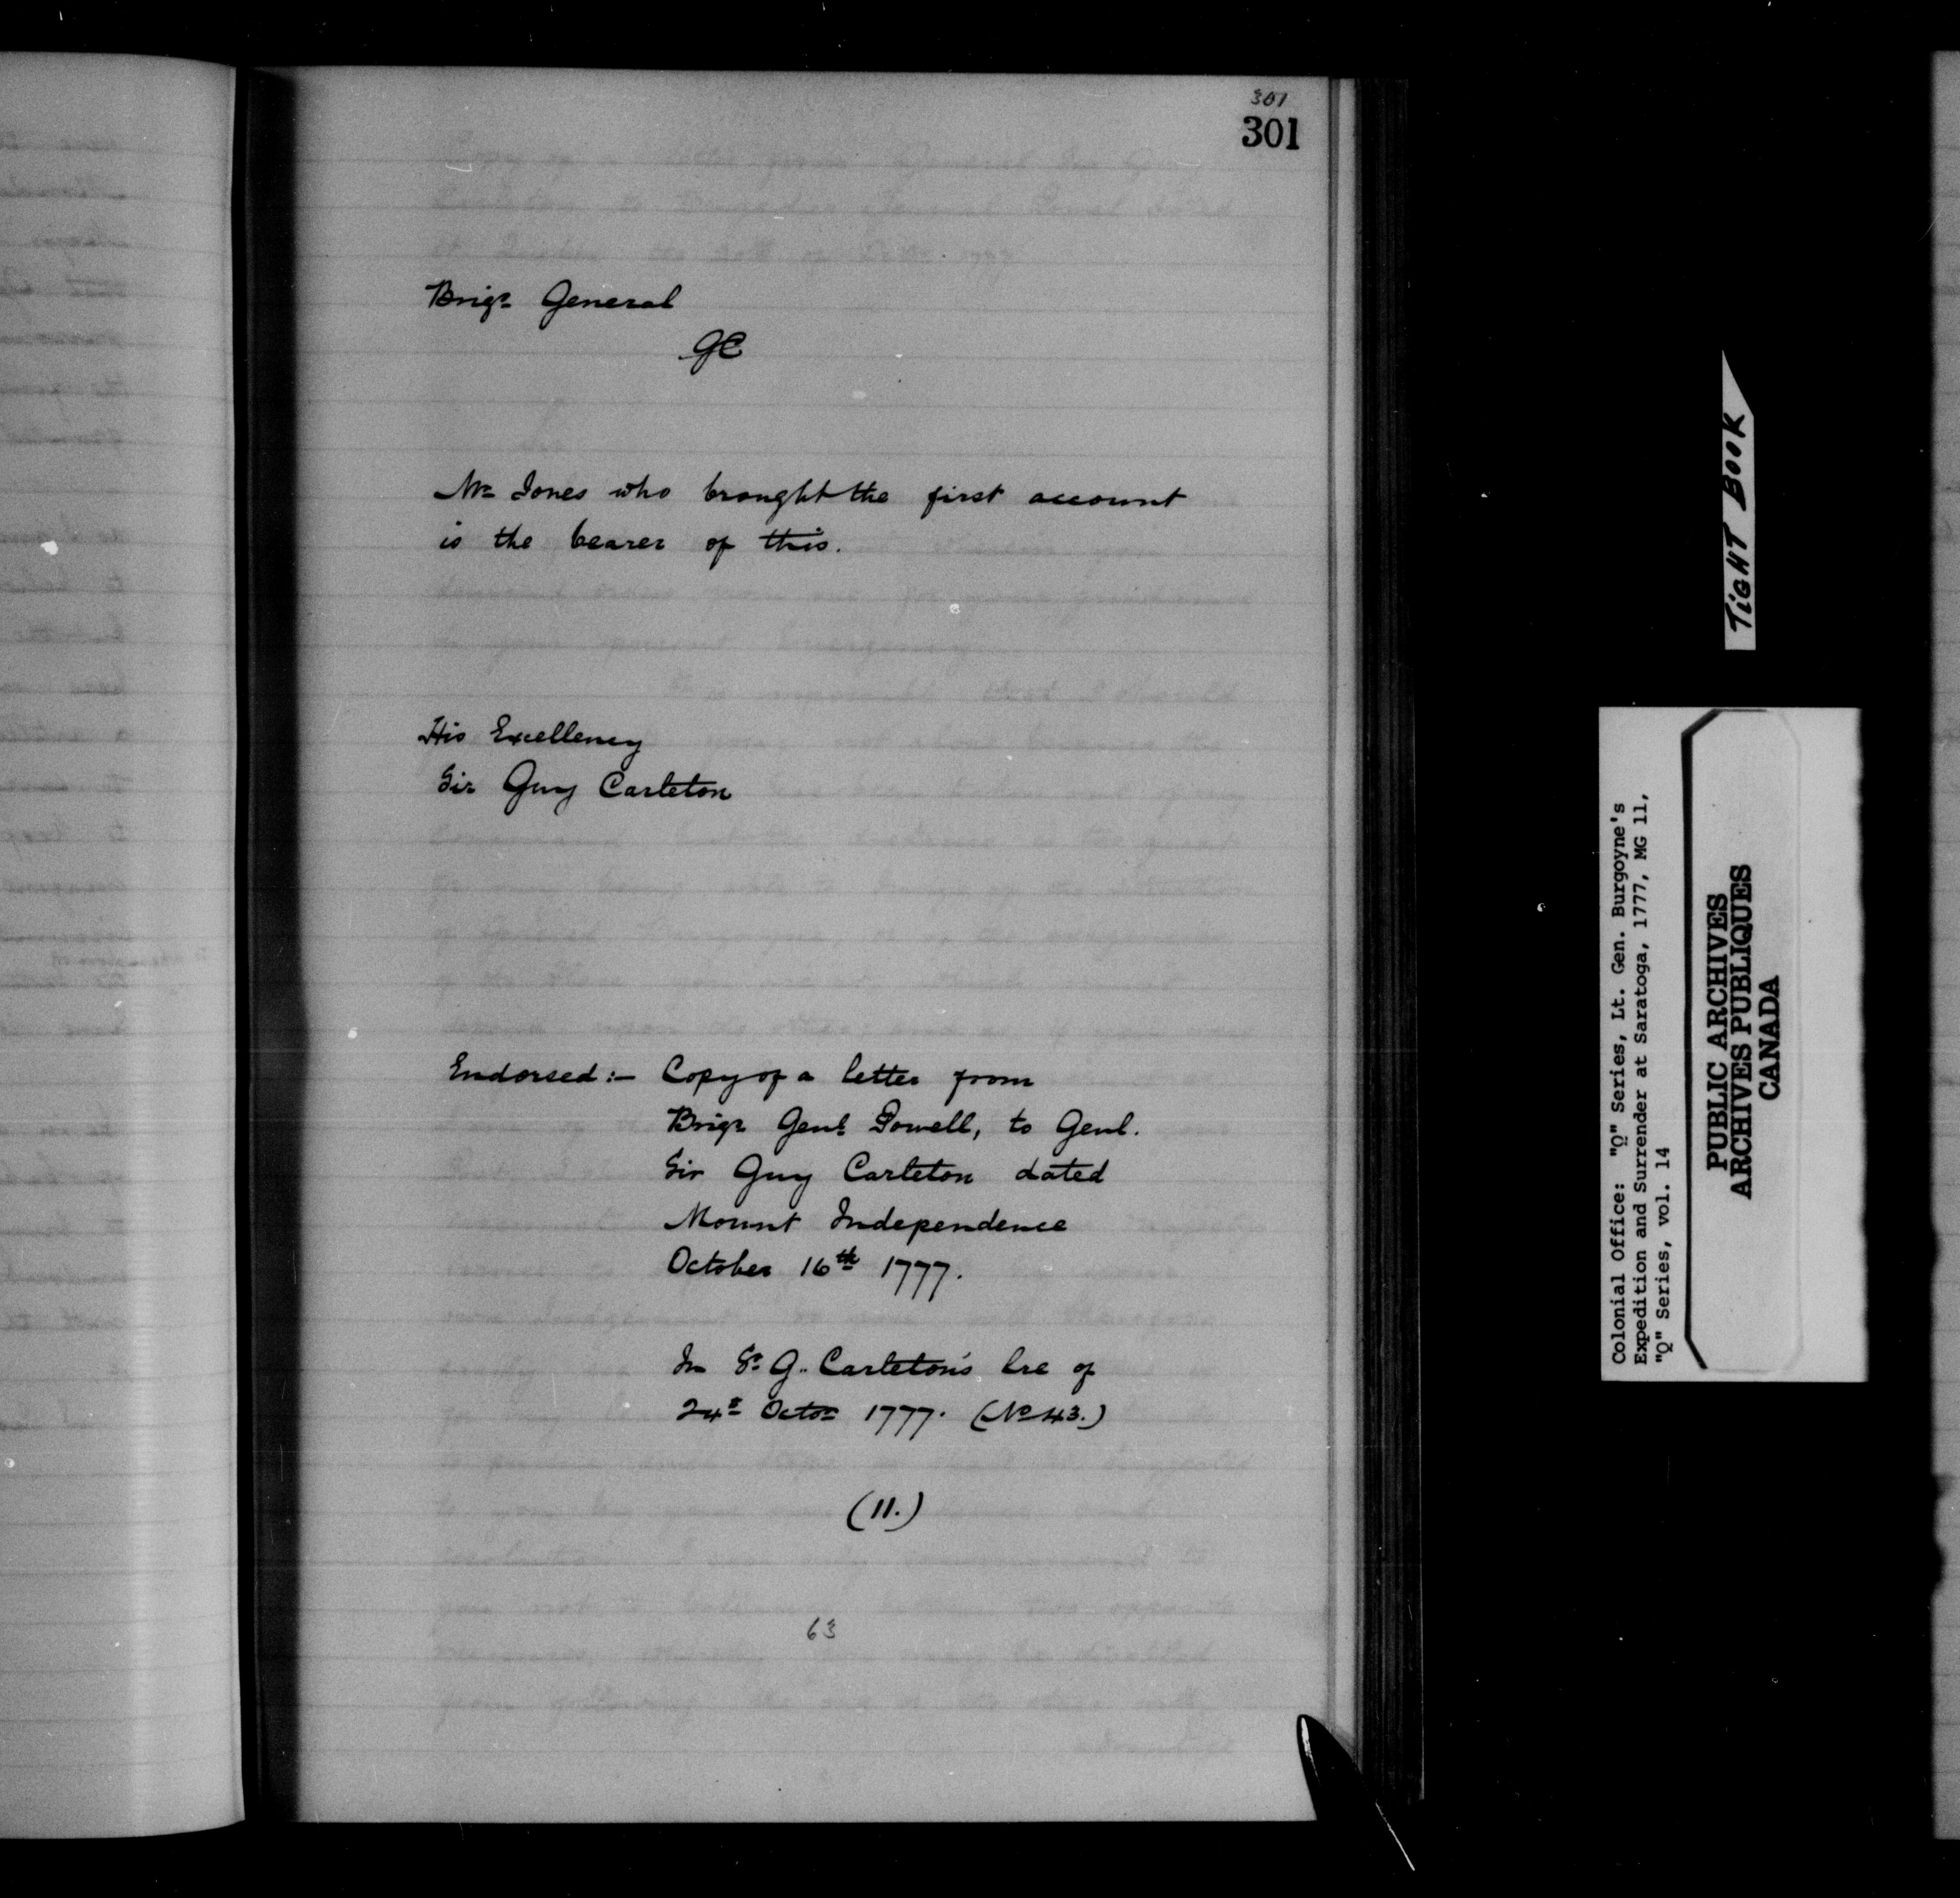 301
301
Brigr General
GC
Mr Jones who brought the first account
is the bearer of this.
His Excellency
Sir Guy Carleton
Endorsed:— Copy of a letter from
Brigr Genl Powell, to Genl.
Sir Guy Carleton dated
Mount Independence
October 16th 1777.
In Sr G. Carleton's lre of
24th Octor 1777. (No 43.)
(11.)
63
TIGHT BOOK
Colonial Office: "Q" Series, Lt. Gen. Burgoyne's
Expedition and Surrender at Saratoga, 1777, MG 11,
"Q" Series, vol. 14
PUBLIC ARCHIVES
ARCHIVES PUBLIQUES
CANADA